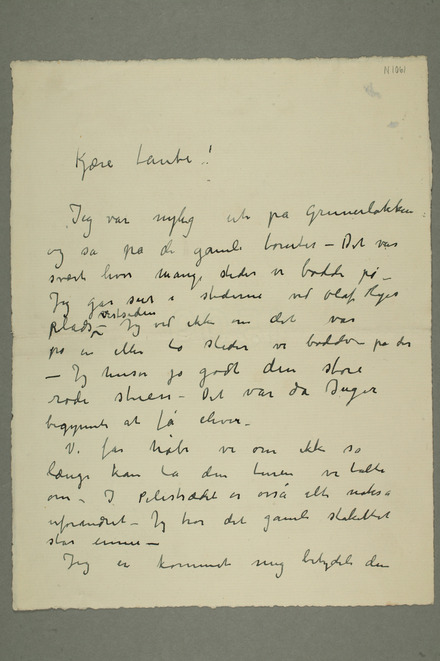 N 1041
Kjære tante!
Jeg var nylig ute på Grünerløkken
og så på de gamle tomter – Det var
svært hvor mange steder vi bodde på –
Jeg går set i stederne ved Olaf Ryes
Plads – vestsiden Jeg ved ikke om det var
på en eller to steder vi bodde på der
– Jeg husker jo godt den store
røde stuen – Det var da Inger
begynte at få elever –
Vi får håbe vi om ikke så
længe kan ta den turen vi talte
om – I Pilestrædet er også alt
uforandret – Jeg tror det gamle stakittet
står ennu –
Jeg er kommet mig betydelig